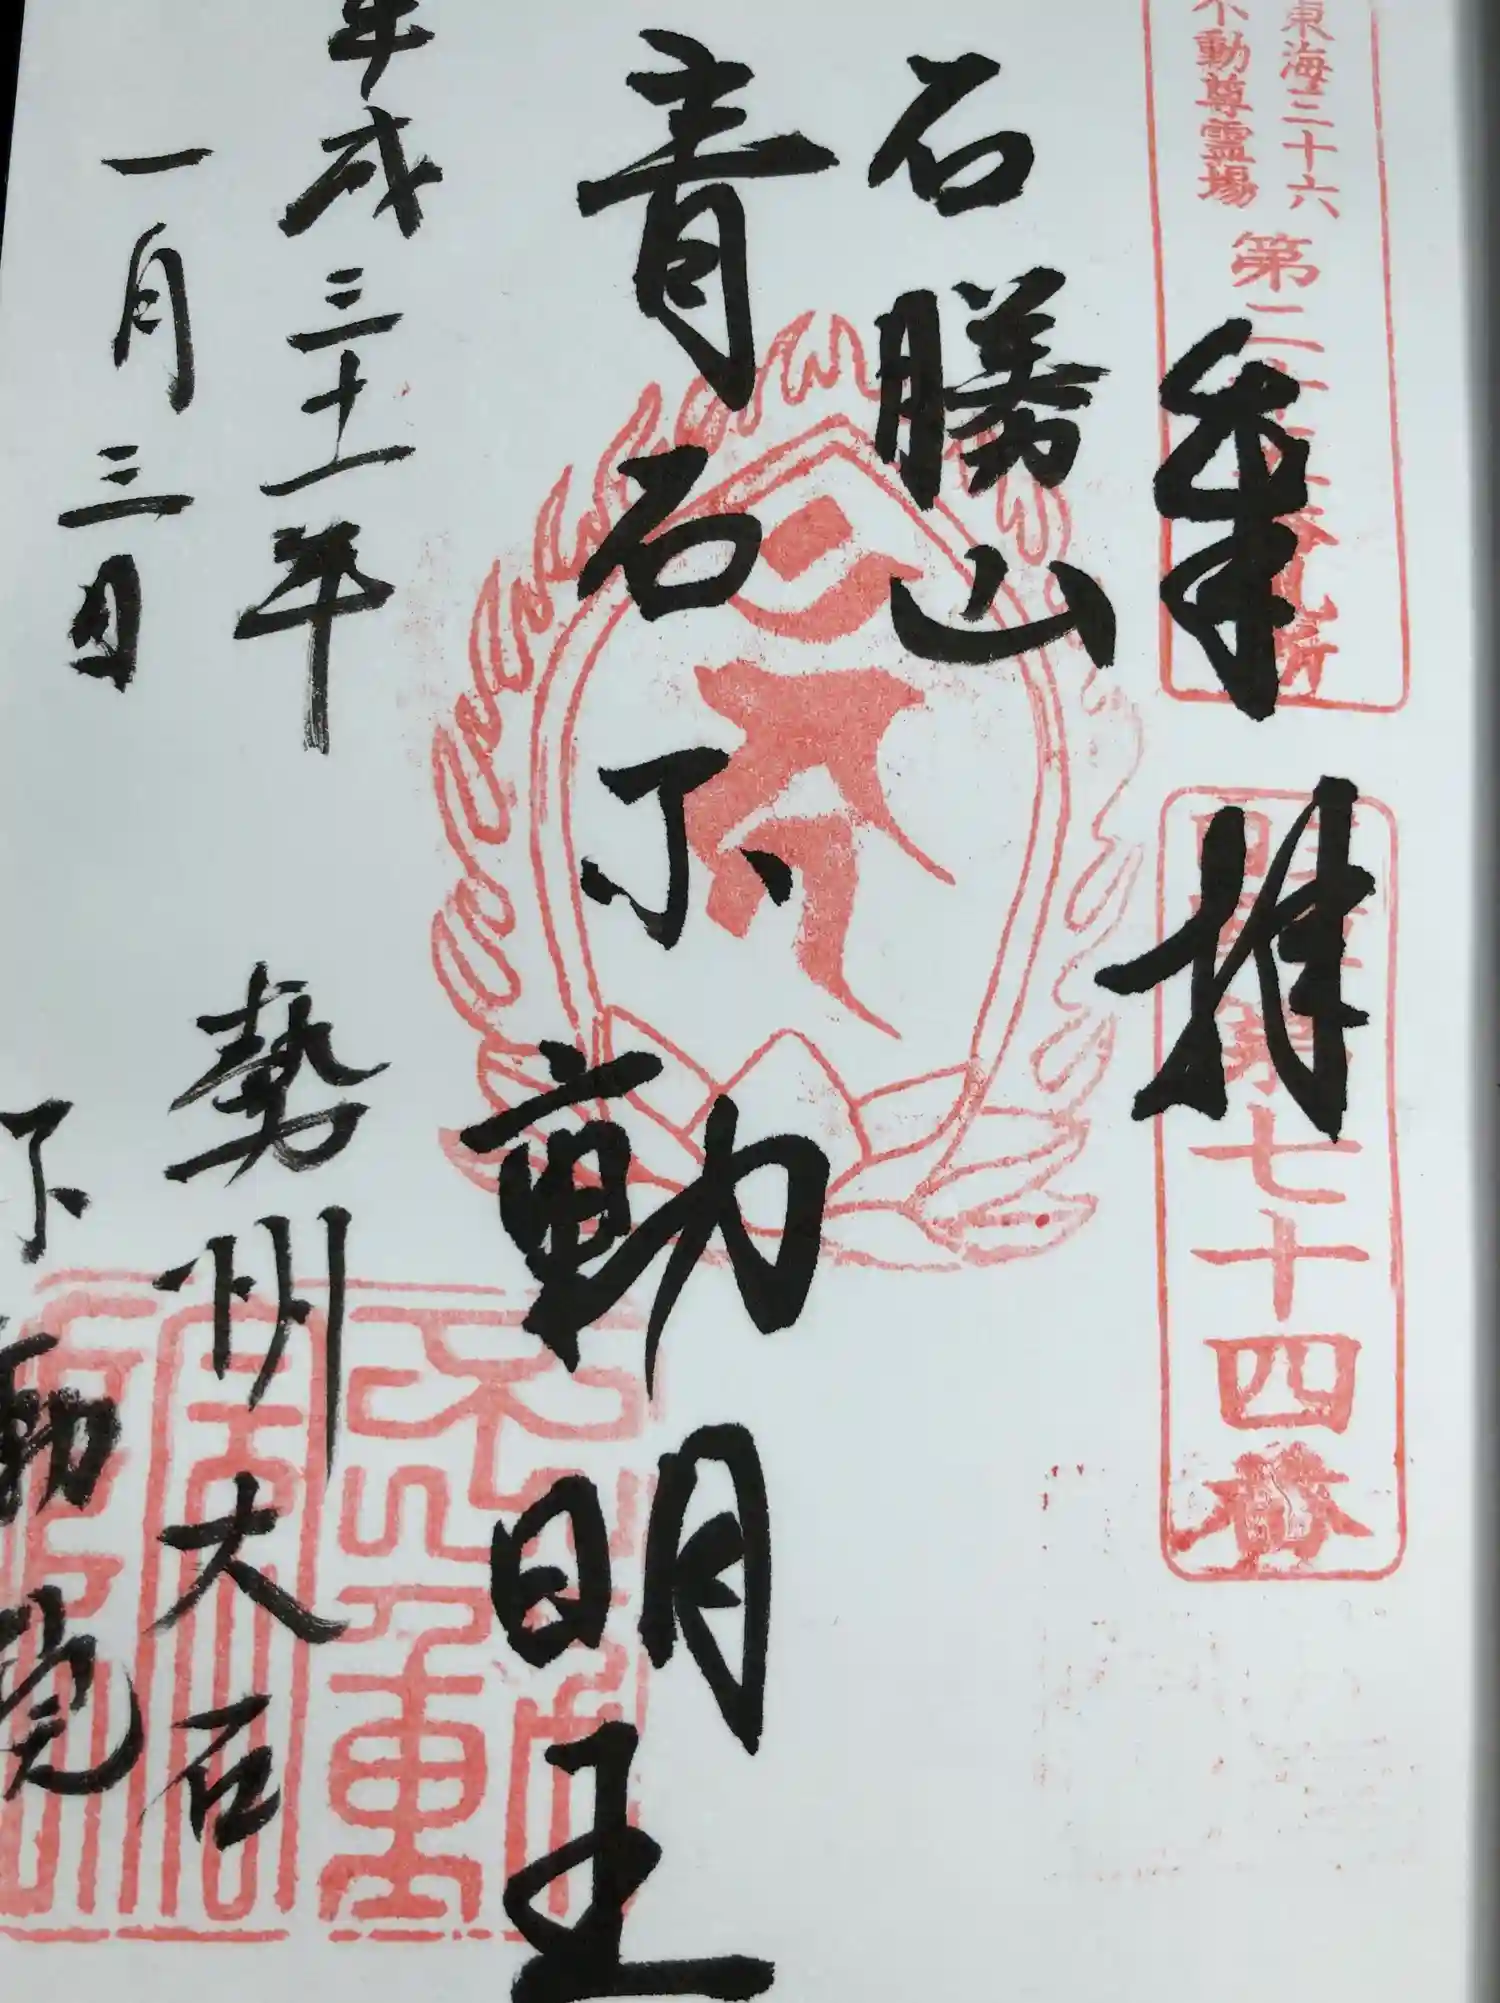 東海三十六
不動尊霊場
第二十
奉拝
第七十四番
石勝山
青石不動明王
平成三十一年
一月三日
勢州大石
不動院